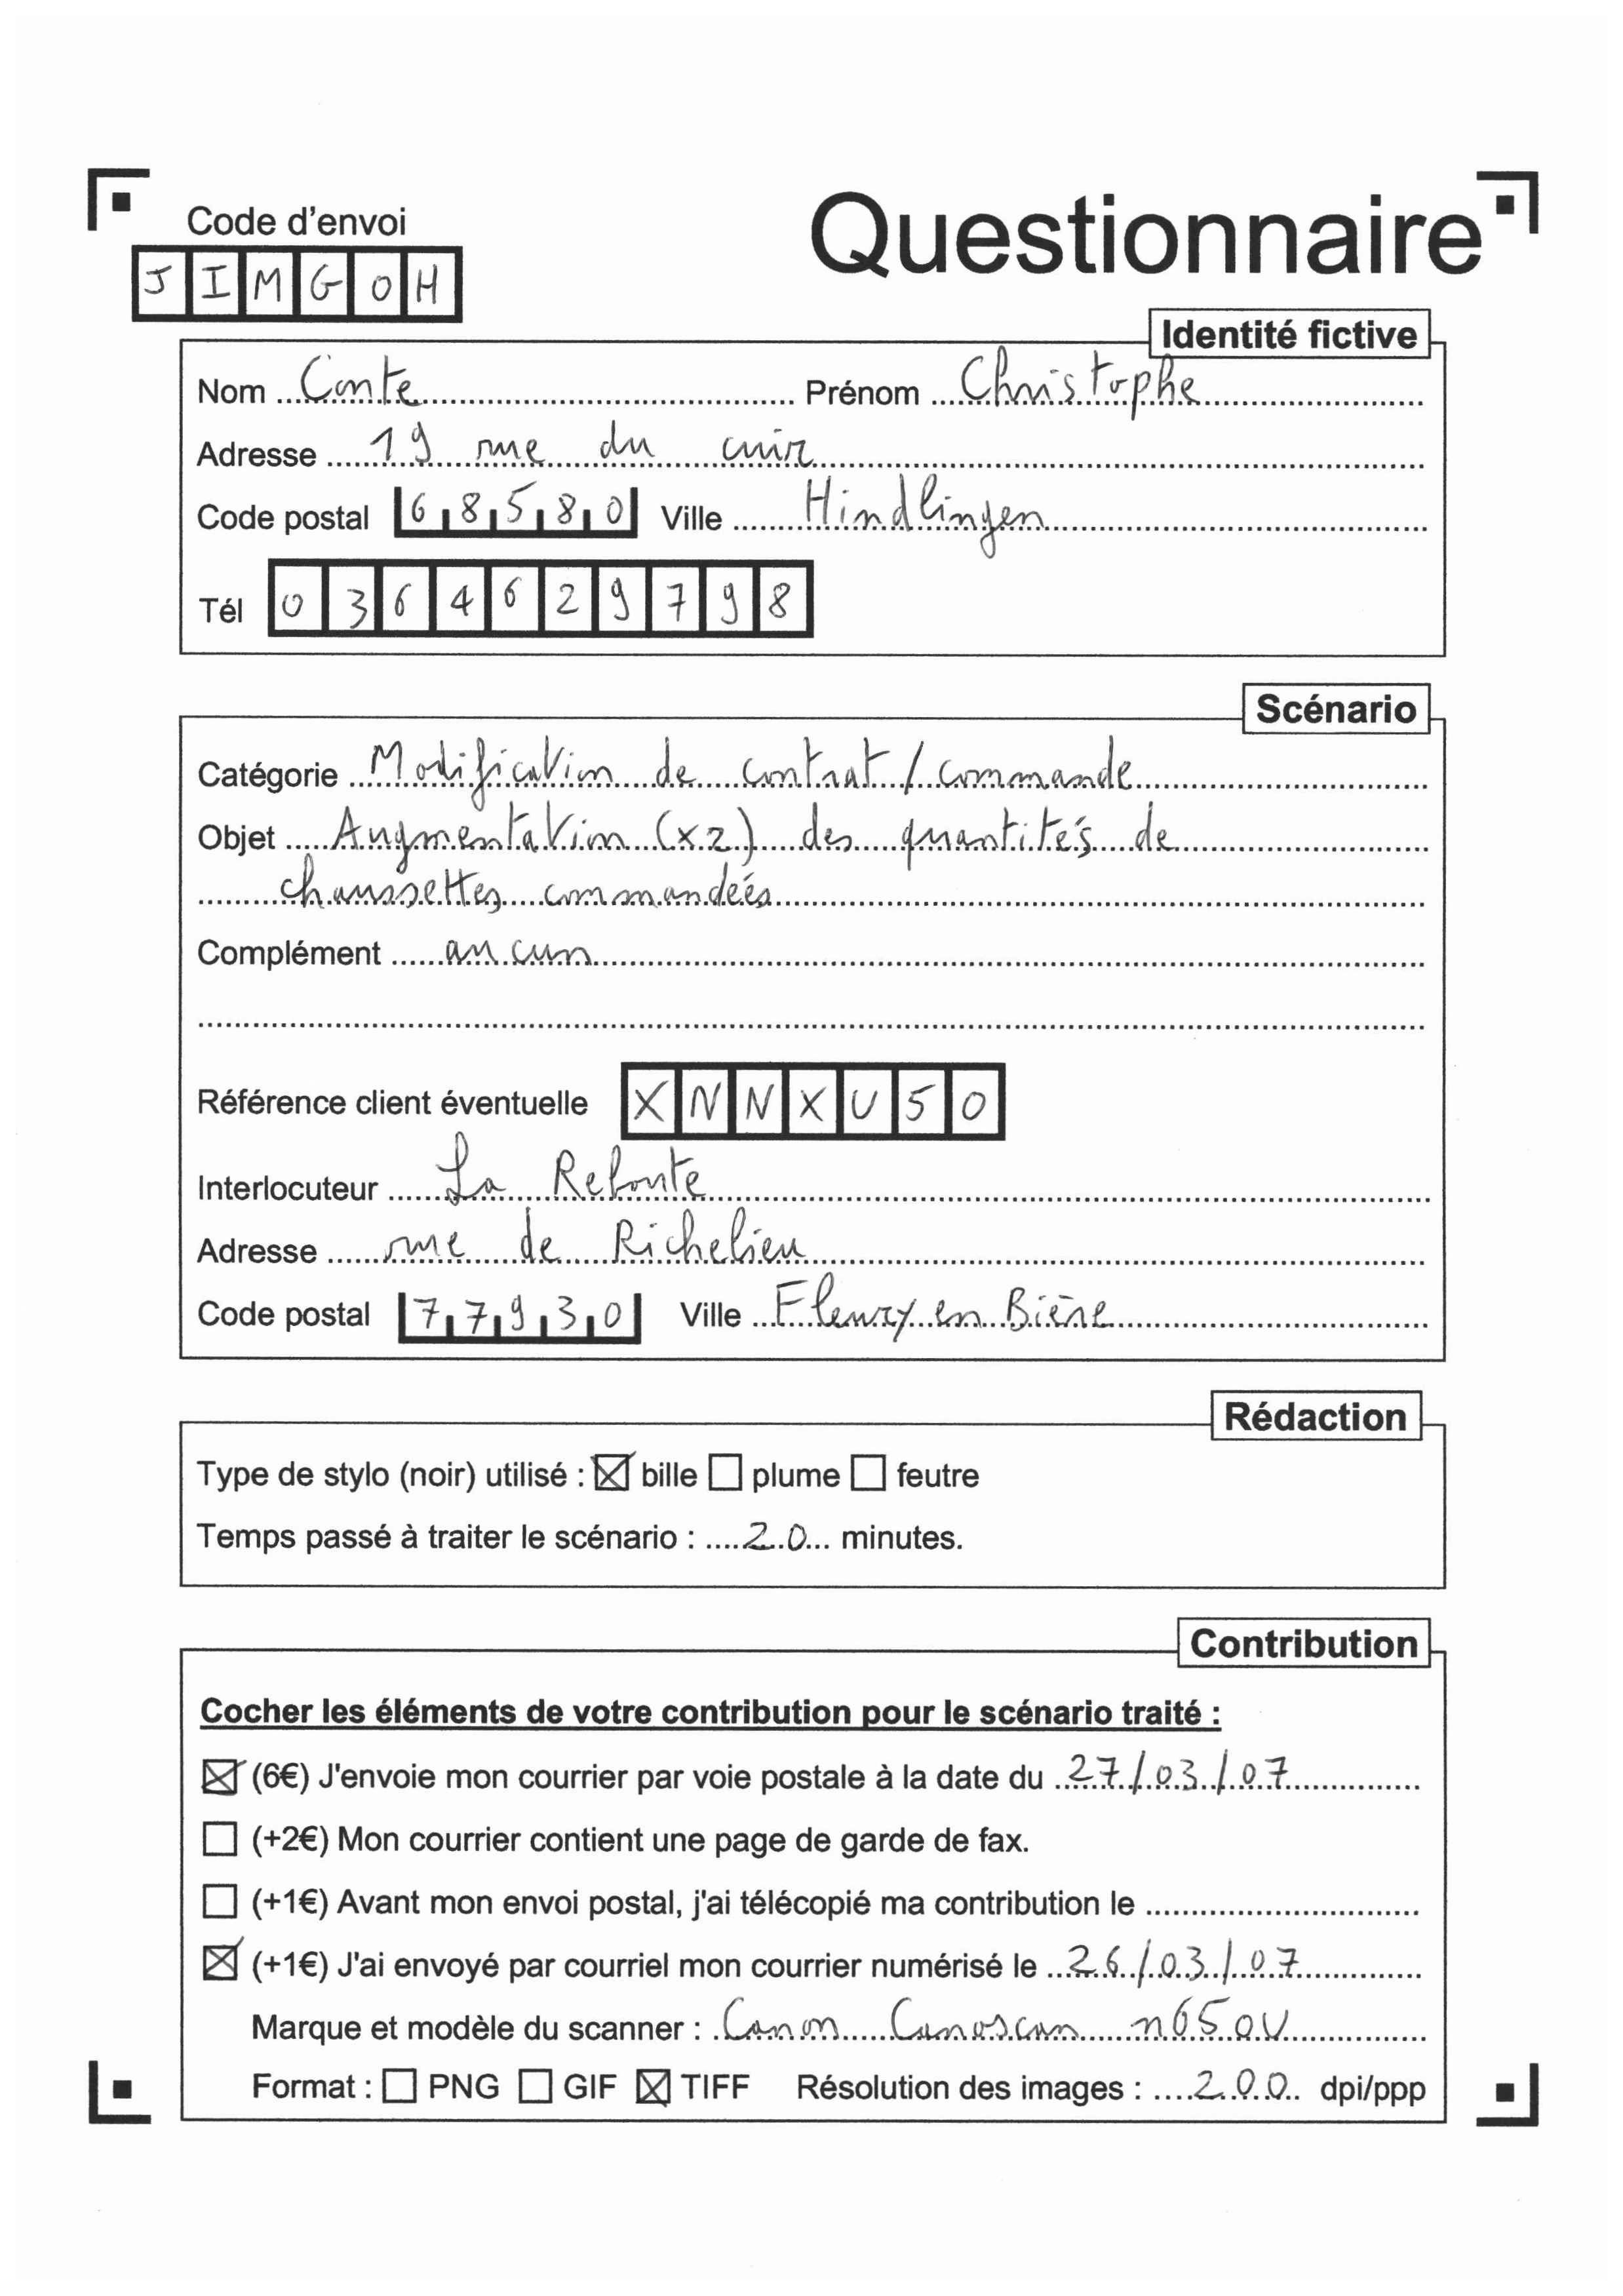 Code d'envoi
Questionnaire
J I M G O H
Identité fictive
Nom Conte Prénom Christophe
Adresse 19 rue du cuir
Code postal 68580 Ville Hindlingen
Tél 0364629798
Scénario
Catégorie Modification de contrat / commande
Objet Augmentation (x2) des quantités de
chaussettes commandées
Complément aucun
Référence client éventuelle XNNXU50
Interlocuteur La Reboute
Adresse rue de Richelieu
Code postal 77930 Ville Fleury en Bière
Rédaction
Type de stylo (noir) utilisé : ☒ bille ☐ plume ☐ feutre
Temps passé à traiter le scénario : 20 minutes.
Contribution
Cocher les éléments de votre contribution pour le scénario traité :
☒ (6€) J'envoie mon courrier par voie postale à la date du 27/03/07
☐ (+2€) Mon courrier contient une page de garde de fax.
☐ (+1€) Avant mon envoi postal, j'ai télécopié ma contribution le
☒ (+1€) J'ai envoyé par courriel mon courrier numérisé le 26/03/07
Marque et modèle du scanner : Canon Canoscan n650U
Format : ☐ PNG ☐ GIF ☒ TIFF Résolution des images : 200 dpi/ppp